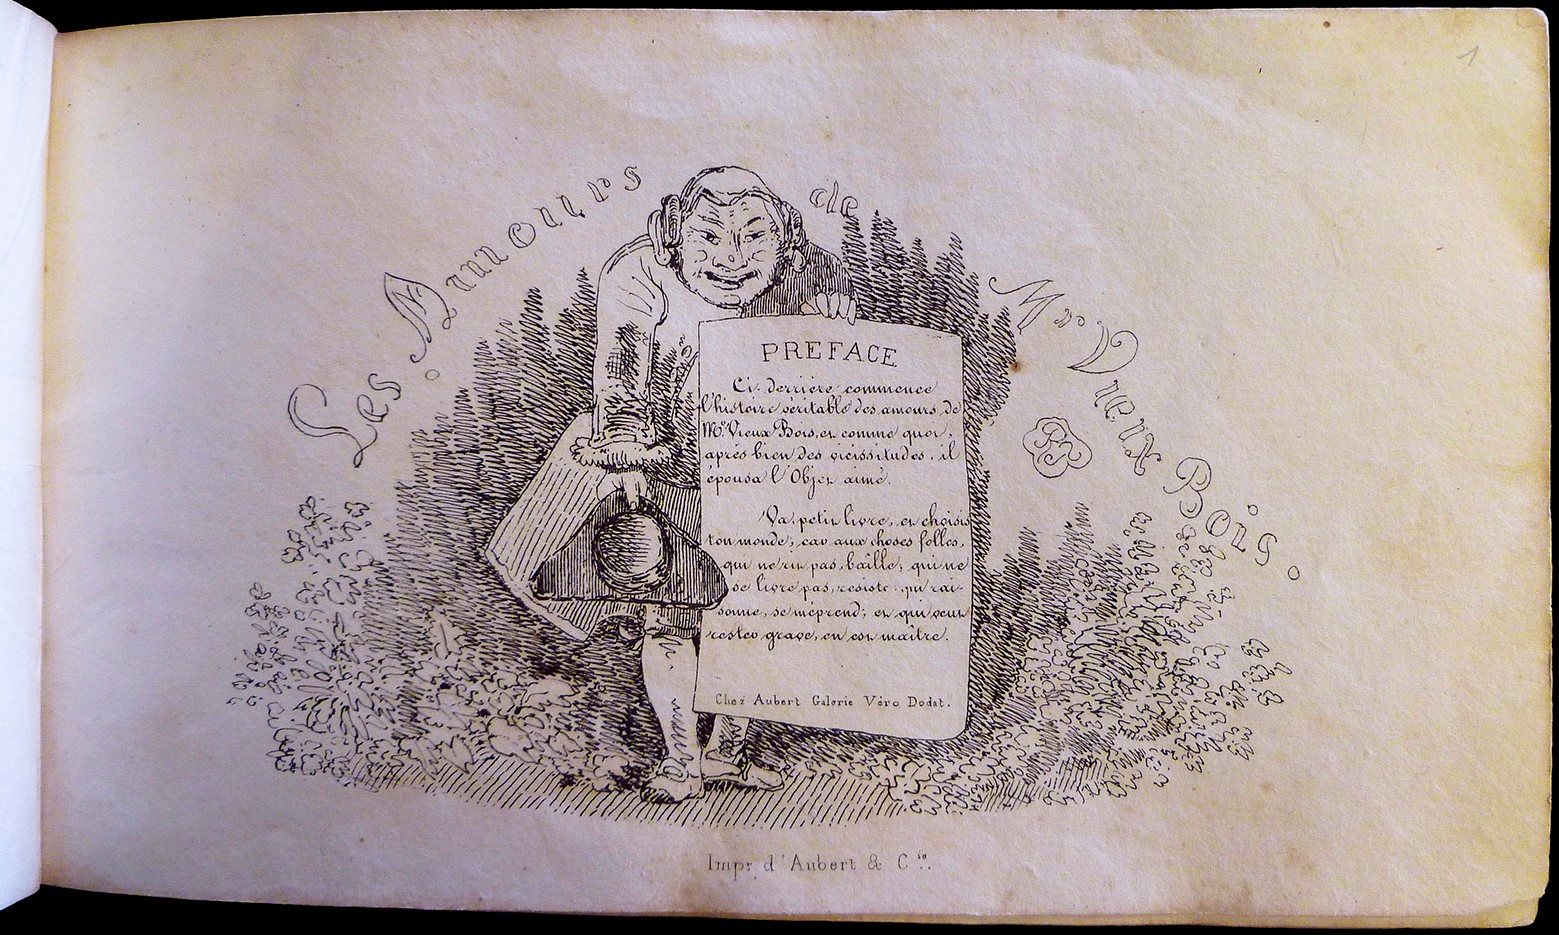 1
Les Amours de Mr Vieux Bois.
PREFACE
Ci-derrière commence
l'histoire véritable des amours de
Mr Vieux Bois, et comme quoi,
après bien des vicissitudes, il
épousa l'Objet aimé.
Va, petit livre, et choisis
ton monde; car aux choses folles,
qui ne rit pas, baille; qui ne
se livre pas, résiste; qui rai-
sonne, se méprend; et qui veut
rester grave, en est maître.
Chez Aubert Galerie Véro Dodat.
Impr. d'Aubert & Cie.